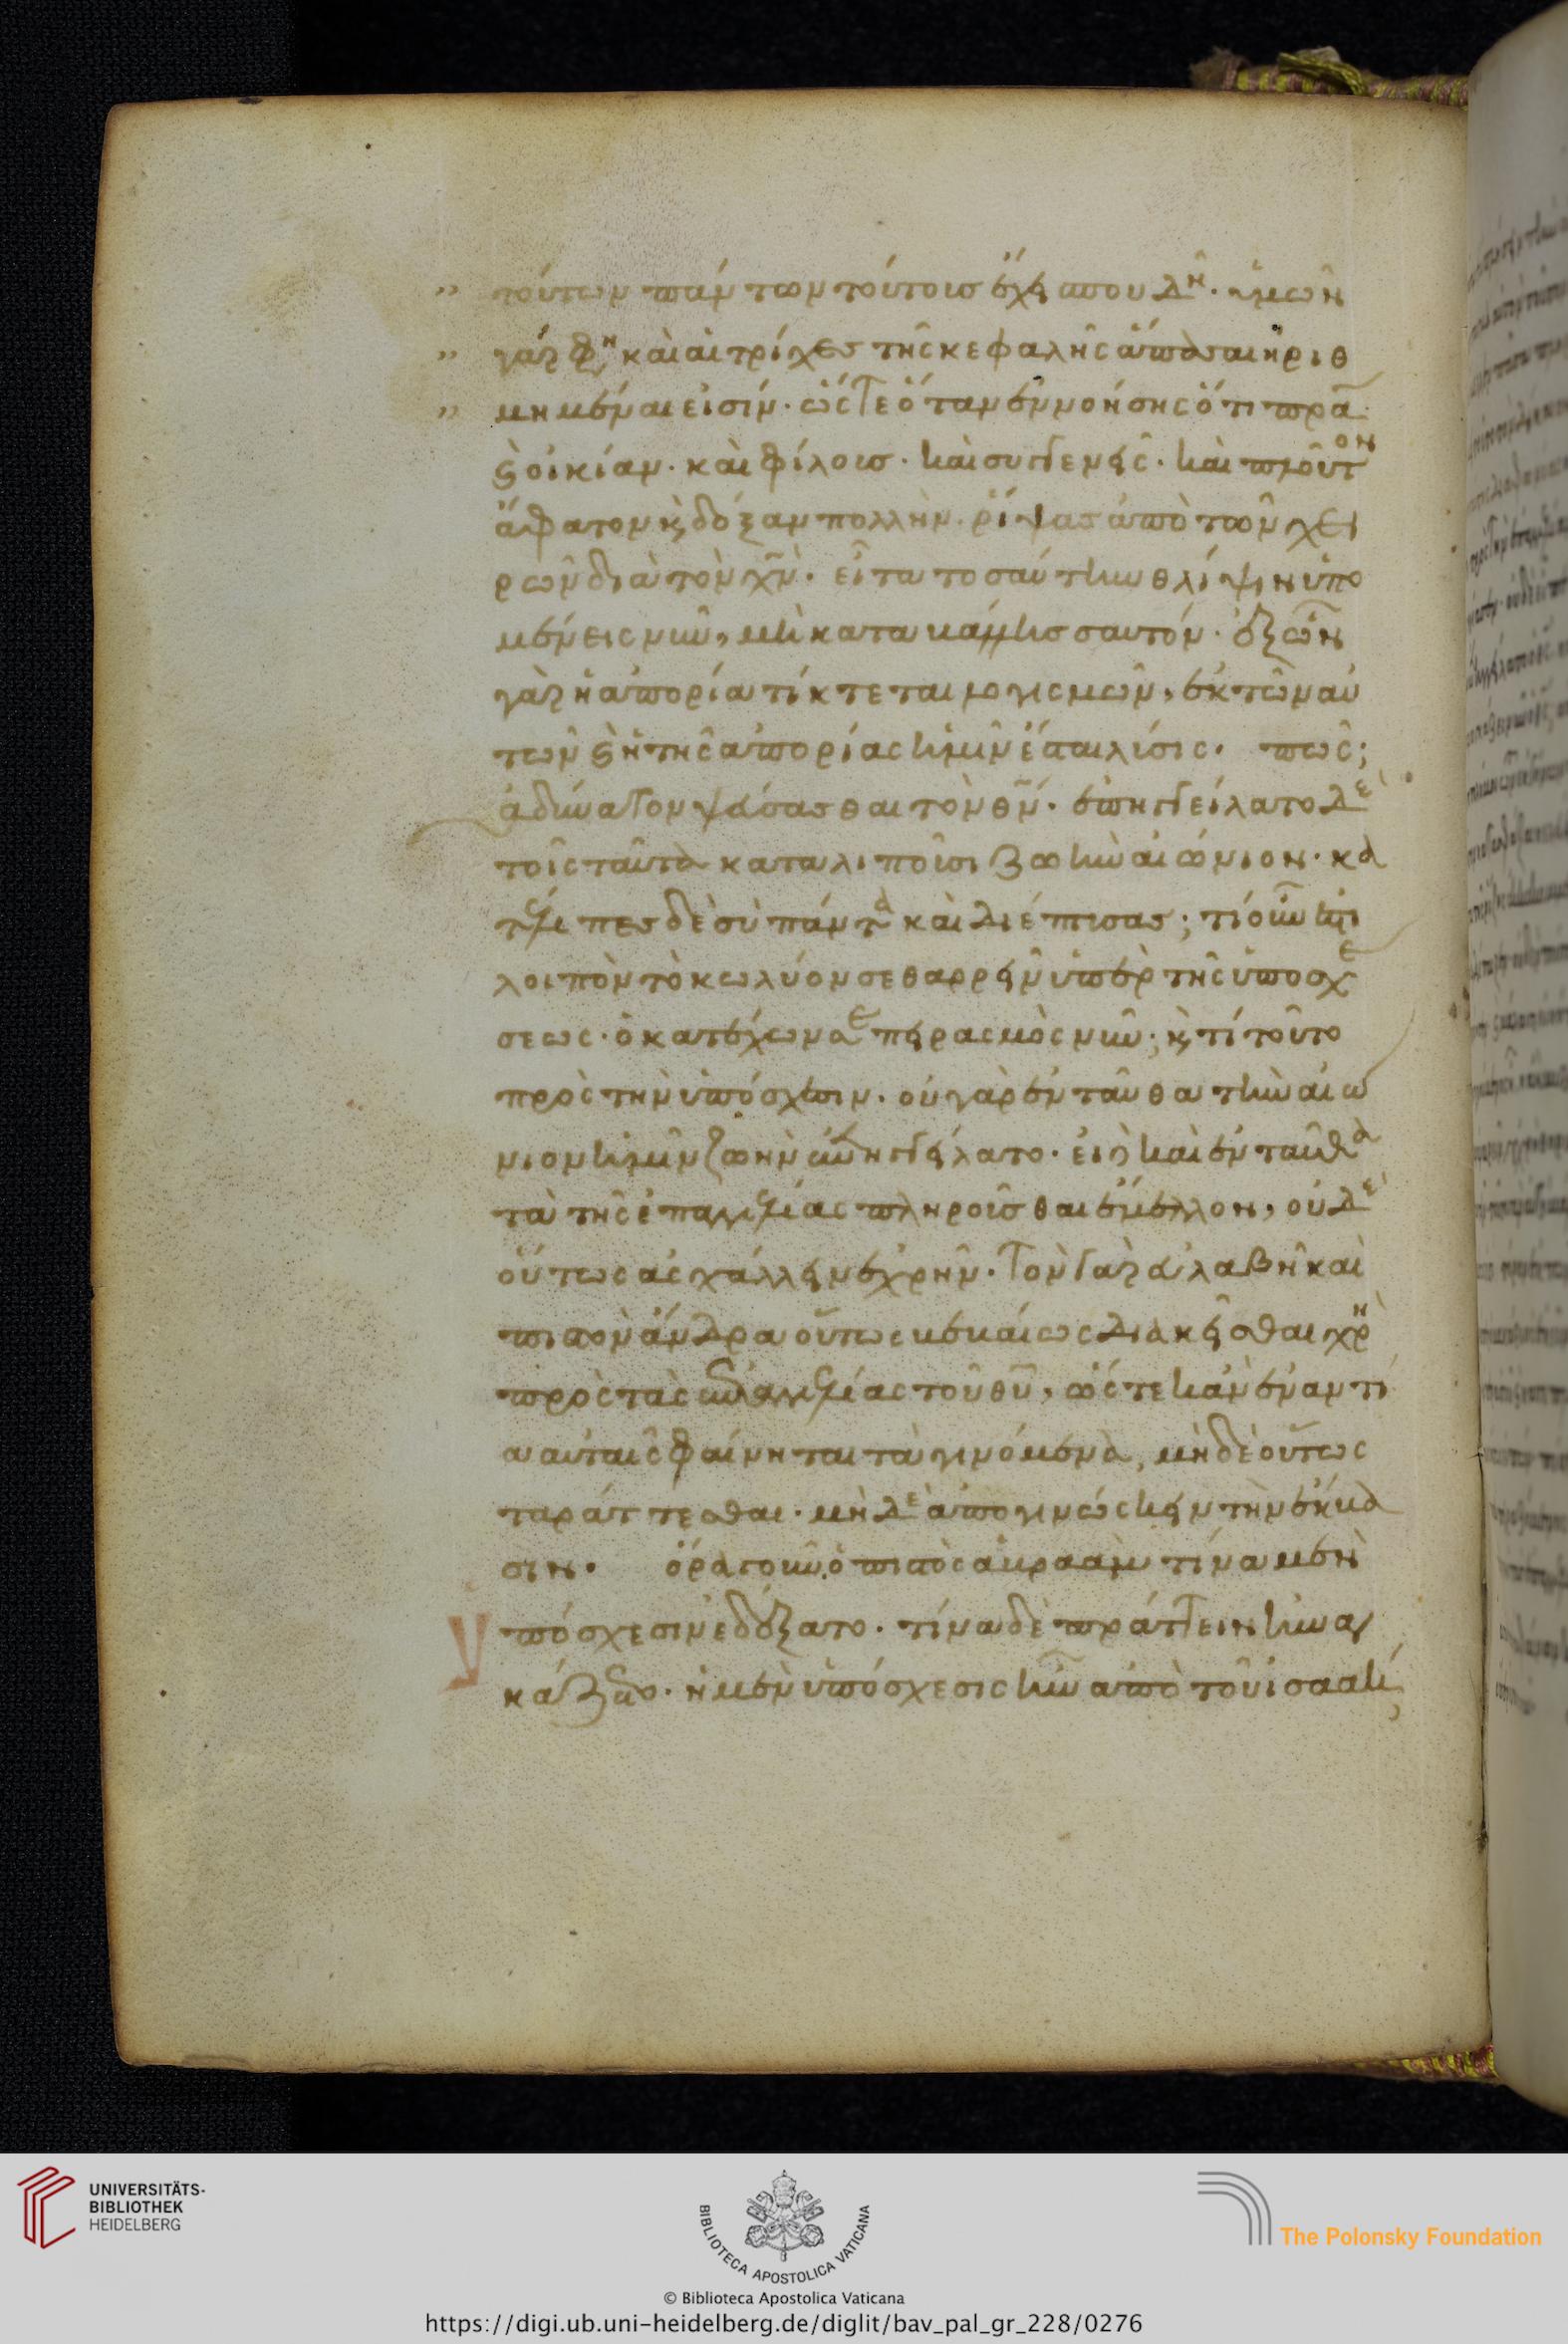 τούτων πάντων τούτοις ἔχει σπουδὴ· ὑμῶν
γάρ φη καὶ αἱ τρίχες τῆς κεφαλῆς ἅπασαι ἠριθ
μημέναι εἰσίν· ὥστε ὅταν ἐννοήσης ὅτι πρᾶ
ϗ οἰκίαν· καὶ φίλους· καὶ συγγενεῖς· καὶ πλοῦτον
ἄφατον ϗ δόξαν πολλὴν· ῥίψας ἀπὸ τῶν χει
ρῶν διὰ τὸν χν· εἶτα τοσαύτην θλίψιν ὑπο
μένεις νῦν, μὴ κατακάμης σαυτόν· ἐξ ὧν
γὰρ ἡ ἀπορία τίκτεται λογισμῶν, ἐκ τῶν αὐ
τῶν ϗ ἡ τῆς ἀπορίας ἡμῖν ἔσται λύσις. πῶς;
ἀδύνατον ψεύσασθαι τὸν θν· ἐπηγγείλατο δὲ
τοῖς ταῦτα καταλιποῦσι ζωὴν αἰώνιον· κα
τέλιπες δὲ σὺ πάντα καὶ διέπτυσας; τί οὖν ἐστι
λοιπὸν τὸ κωλύον σε θαρρεῖν ὑπὲρ τῆς ὑποσχέ
σεως· ὁ κατέχων σε πειρασμὸς νῦν; ϗ τί τοῦτο
πρὸς τὴν ὑπόσχεσιν· οὐ γὰρ ἐνταῦθα τὴν αἰώ
νιον ἡμῖν ζωὴν ἐπηγγείλατο· εἰ δὲ καὶ ἐνταῦθα
τὰ τῆς ἐπαγγελίας πληροῦσθαι ἔμελλον, οὐδὲ
οὕτως ἀσχάλλειν ἐχρῆν· τὸν γὰρ εὐλαβῆ καὶ
πιστὸν ἄνδρα οὕτως βεβαίως διακεῖσθαι χρὴ
πρὸς τὰς ἐπαγγελίας τοῦ θυ, ὥστε κἂν ἐναντί
α αὐταῖς φαίνηται τὰ γινόμενα, μηδὲ οὕτως
ταράττεσθαι· μηδὲ ἀπογινώσκειν τὴν ἔκβα
σιν. ὅρα γοῦν ὁ πιστὸς ἀβραὰμ τίνα μὲν
Ὑπόσχεσιν ἐδέξατο· τίνα δὲ πράττειν ἠναγ
κάζετο· ἡ μὲν ὑπόσχεσις ἦν ἀπὸ τοῦ ἰσαάκ
UNIVERSITÄTS-
BIBLIOTHEK
HEIDELBERG
BIBLIOTECA APOSTOLICA VATICANA
The Polonsky Foundation
© Biblioteca Apostolica Vaticana
https://digi.ub.uni-heidelberg.de/diglit/bav_pal_gr_228/0276